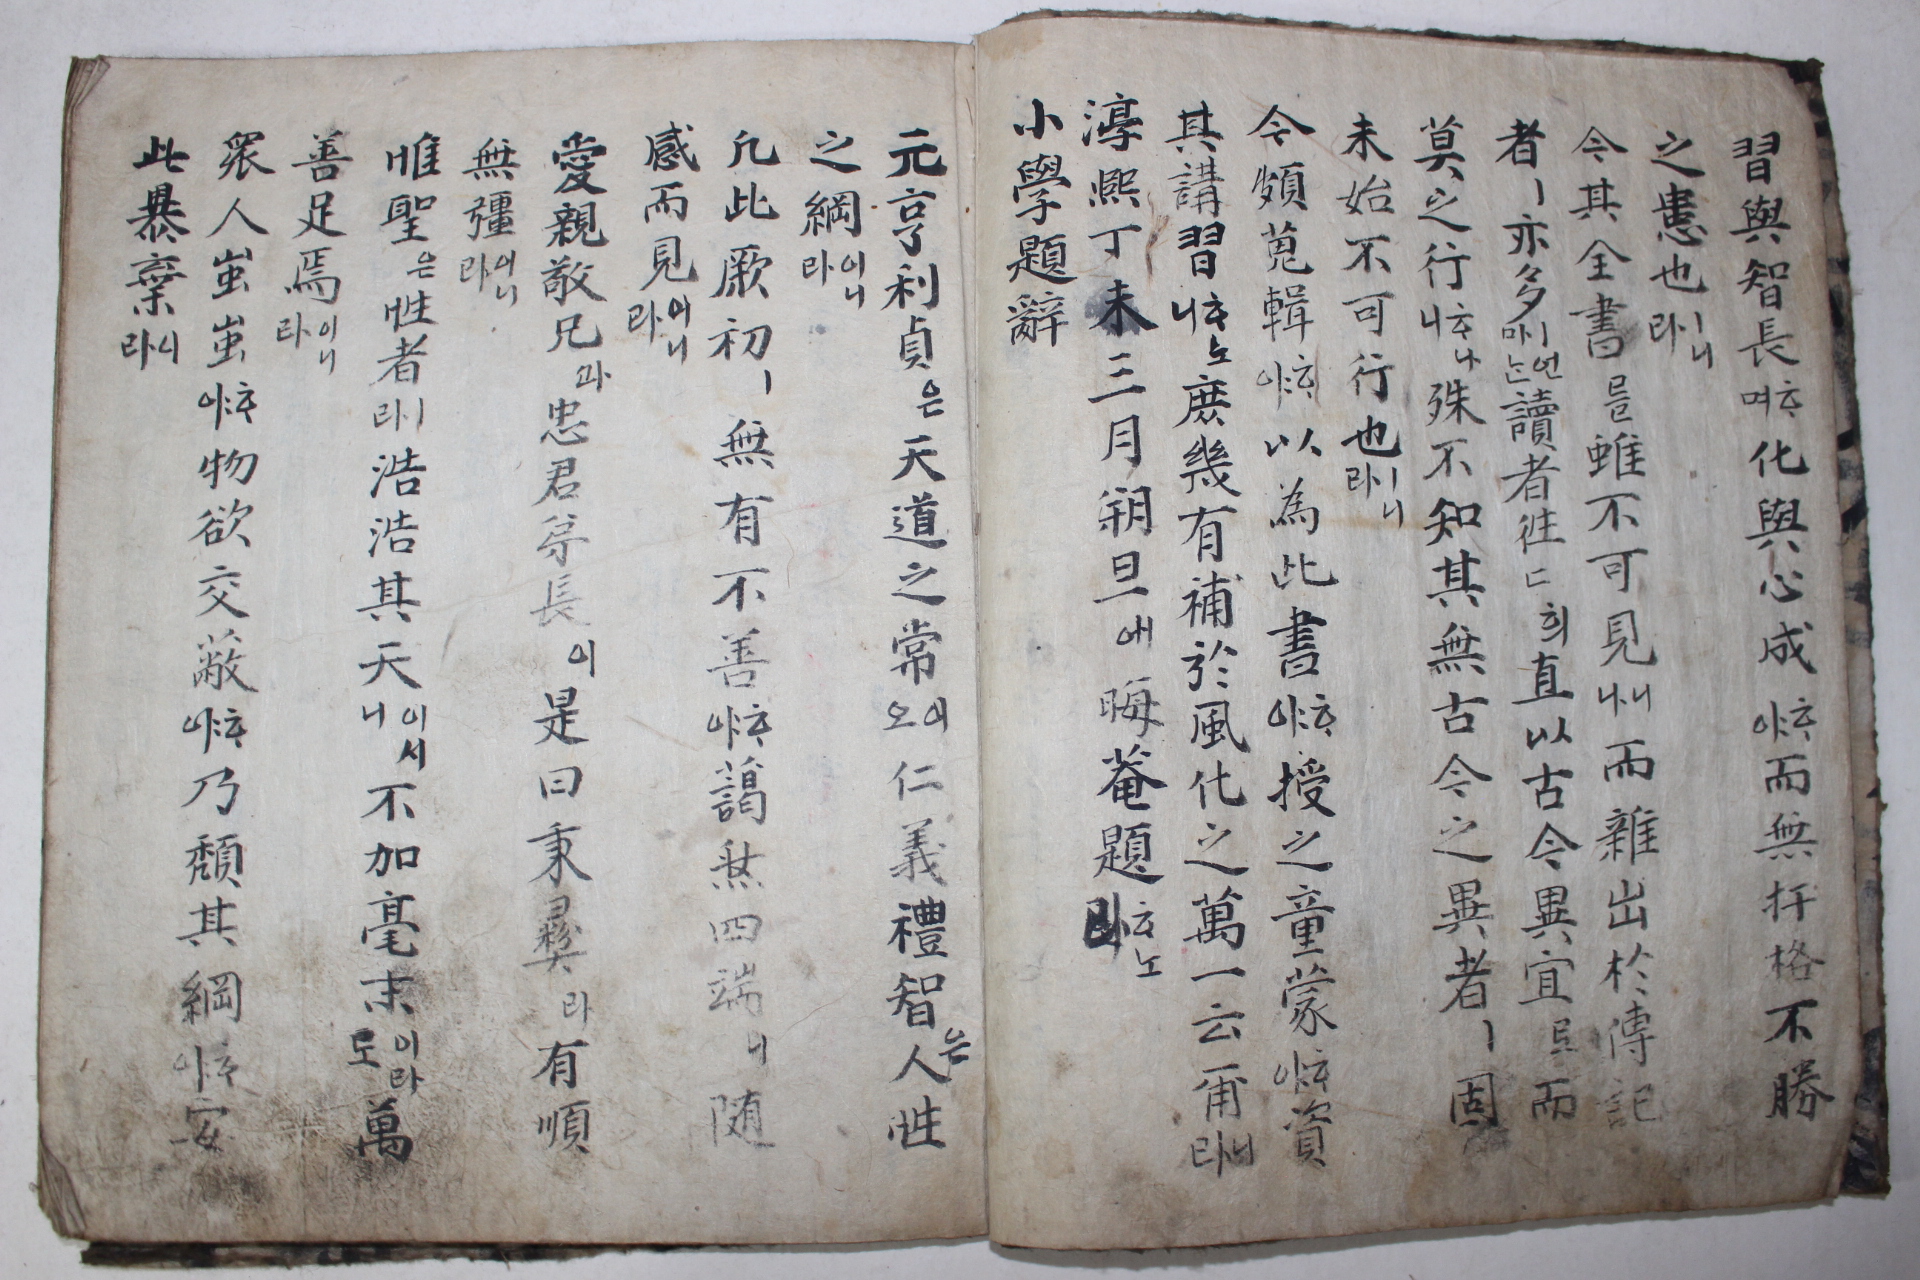 習與智長ᄒᆞ며化與心成ᄒᆞ야而無扞格不勝
之患也ㅣ니라
今其全書를雖不可見이나而雜出於傳記
者ㅣ亦多ㅣ언마는讀者往〻희直以古今異宜로而
莫之行ᄒᆞ나니殊不知其無古今之異者ㅣ固
未始不可行也ㅣ니라
今頗蒐輯ᄒᆞ야以為此書ᄒᆞ야授之童蒙ᄒᆞ야資
其講習ᄒᆞ노니庶幾有補於風化之萬一云爾니라
淳熙丁未三月朔旦에晦菴題ᄒᆞ노라
小學題辭
元亨利貞은天道之常이오仁義禮智는人性
之綱이니라
凡此厥初ㅣ無有不善ᄒᆞ야藹然四端니隨
感而見이니라
愛親敬兄과忠君弟長이是曰秉彛라有順
無彊이니라
惟聖은性者ㅣ라浩浩其天이시니不加毫末이라도萬
善足焉이니라
衆人蚩蚩ᄒᆞ야物欲交蔽ᄒᆞ야乃頹其綱ᄒᆞ야安
此暴棄니라